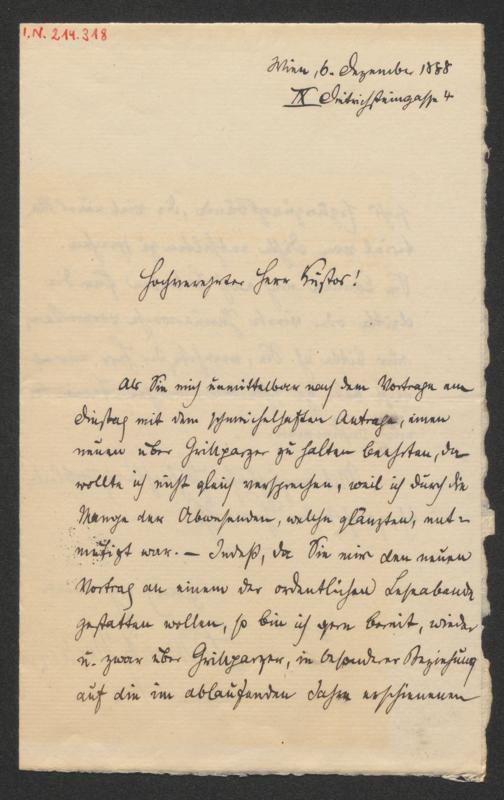 I.N. 214.318
Wien, 6. Dezember 1888
IX Dietrichsteingasse 4
Hochverehrter Herr Kustos!
Als Sie mich unmittelbar nach dem Vortrage am
Dienstag mit dem schmeichelhaften Antrage, einen
neuen über Grillparzer zu halten beehrten, da
wollte ich nicht gleich versprechen, weil ich durch die
Menge der Abwesenden, welche glänzten, ent-
mutigt war. – Indeß, da Sie mir den neuen
Vortrag an einem der ordentlichen Leseabende
gestatten wollen, so bin ich gern bereit, wieder
u. zwar über Grillparzer, in besonderer Beziehung
auf die im ablaufenden Jahre erschienenen